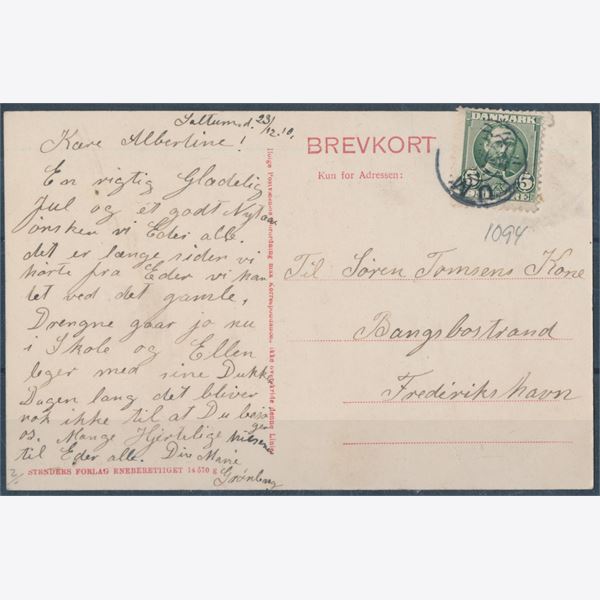 Saltum. d. 23/12.10.
Kære Albertine!
En rigtig Glædelig
Jul og et godt Nytaar
ønsker vi Eder alle.
det er længe siden vi
hørte fra Eder vi har
det ved det gamle,
Drengne gaar jo nu
i Skole og Ellen
leger med sine Dukker
Dagen lang det bliver
nok ikke til at Du besøger
os. Mange Hjertelige Hilsener
til Eder alle. Din Marie
Grønberg
2/.
STENDERS FORLAG ENEBERETTIGET 14570
Ifølge Postvæsenets Forordning maa Korrespondancen ikke overskride denne Linie
BREVKORT
Kun for Adressen:
DANMARK
5 5
ØRE
1094
Til Søren Tomsens Kone
Bangsbostrand
Frederikshavn